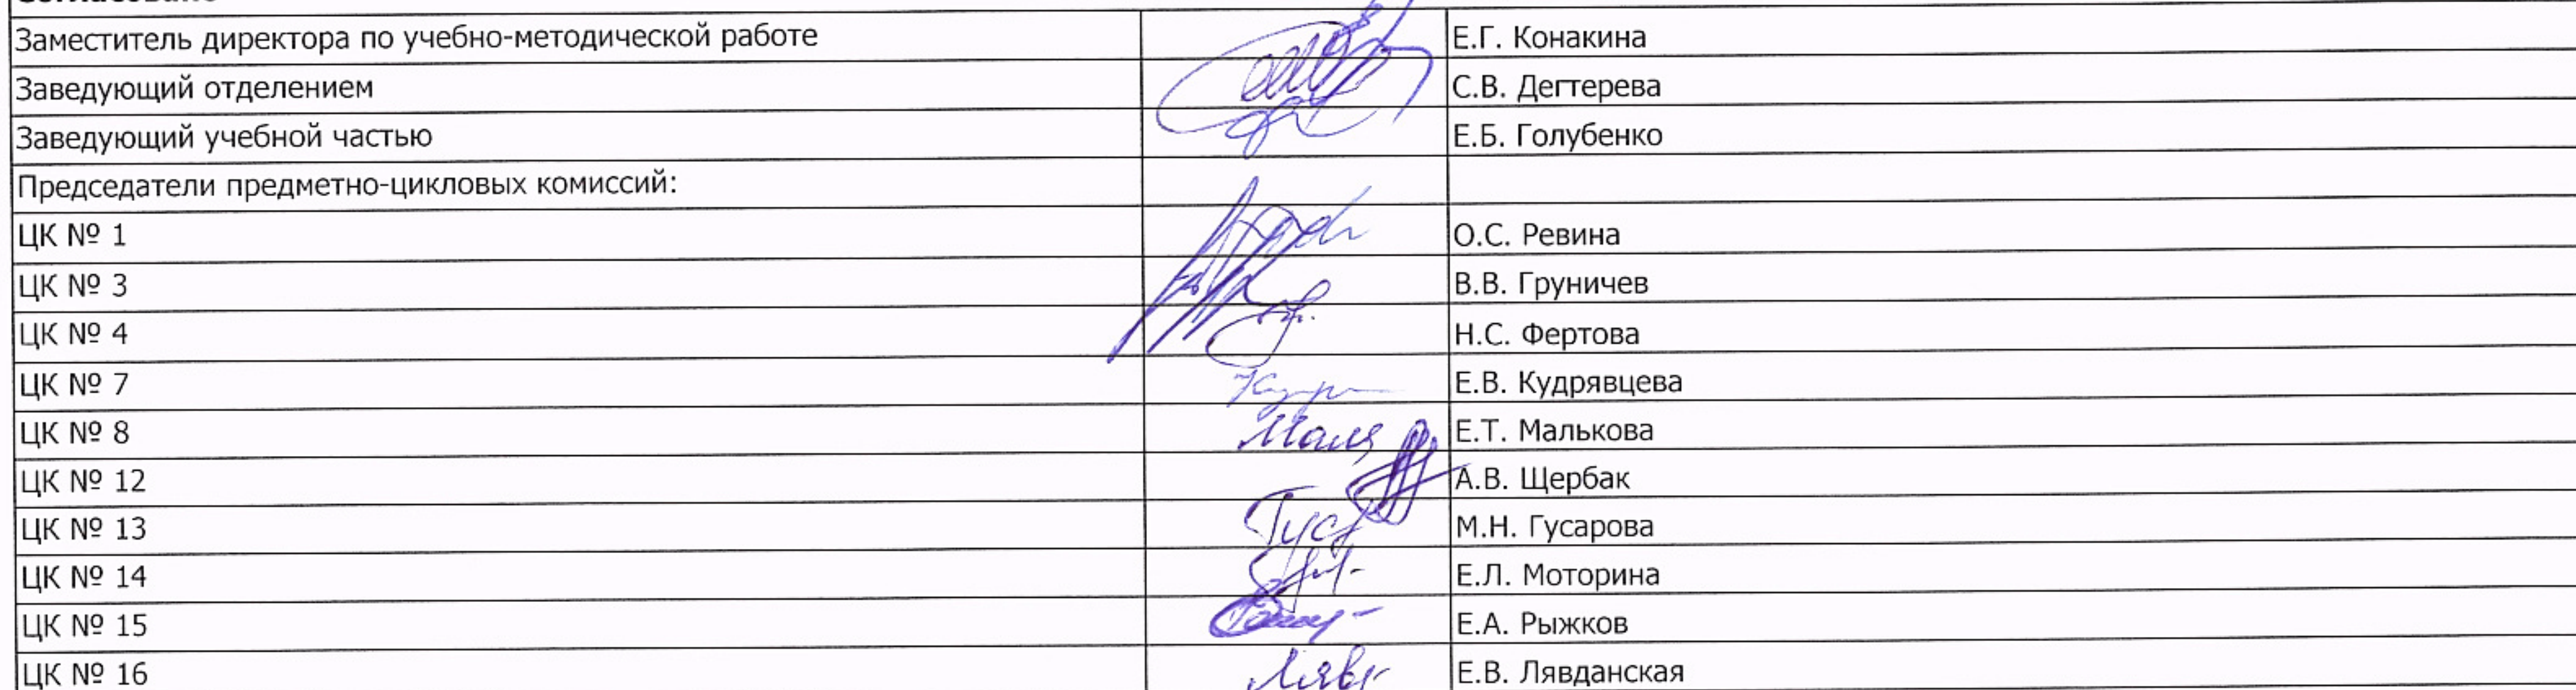 Заместитель директора по учебно-методической работе Е.Г. Конакина
Заведующий отделением С.В. Дегтерева
Заведующий учебной частью Е.Б. Голубенко
Председатели предметно-цикловых комиссий:
ЦК № 1 О.С. Ревина
ЦК № 3 В.В. Груничев
ЦК № 4 Н.С. Фертова
ЦК № 7 Е.В. Кудрявцева
ЦК № 8 Е.Т. Малькова
ЦК № 12 А.В. Щербак
ЦК № 13 М.Н. Гусарова
ЦК № 14 Е.Л. Моторина
ЦК № 15 Е.А. Рыжков
ЦК № 16 Е.В. Лявданская